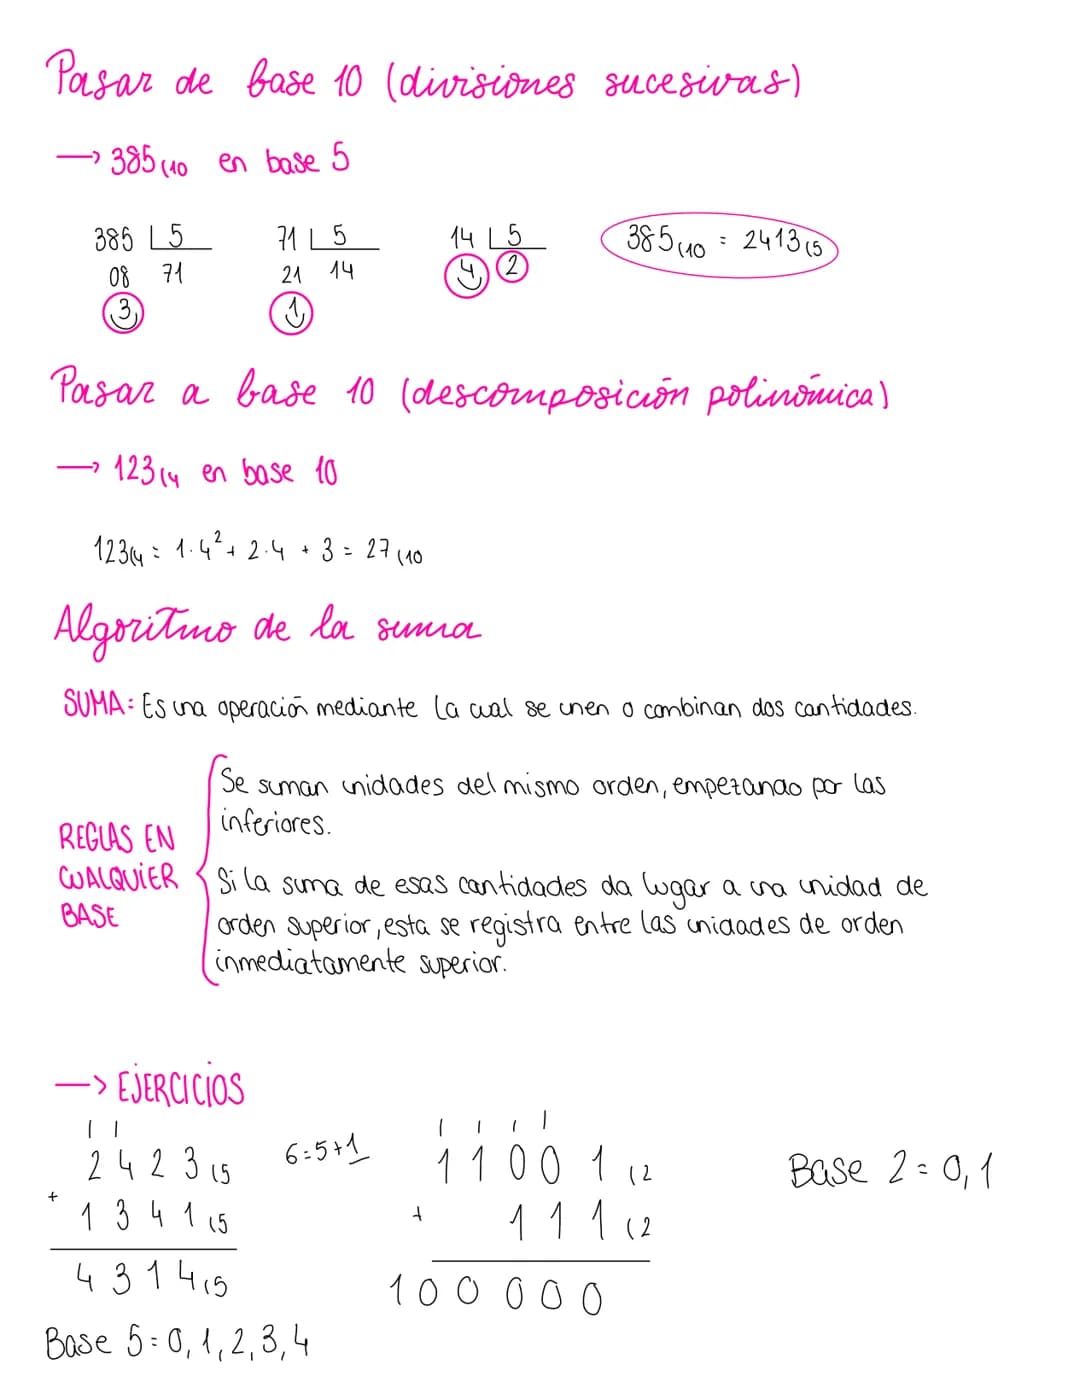 Pasar de base 10 (divisiones sucesivas)
→ 385(10 en base 5
385 | 5    71 | 5    14 | 5    385(10 = 2413(5
08 71    21 14    4 2
3    1
Pasar a base 10 (descomposición polinómica)
→ 123(4 en base 10
123(4 = 1·4² + 2·4 + 3 = 27(10
Algoritmo de la suma
SUMA: Es una operación mediante la cual se unen o combinan dos cantidades.
REGLAS EN CUALQUIER BASE
Se suman unidades del mismo orden, empezando por las
inferiores.
Si la suma de esas cantidades da lugar a una unidad de
orden superior, esta se registra entre las unidades de orden
inmediatamente superior.
→ EJERCICIOS
1 1
2 4 2 3 (5
+ 1 3 4 1 (5
4 3 1 4 (5
Base 5 = 0, 1, 2, 3, 4
6 = 5 + 1
1 1 1 1
1 1 0 0 1 (2
+ 1 1 1 (2
1 0 0 0 0 0
Base 2 = 0, 1